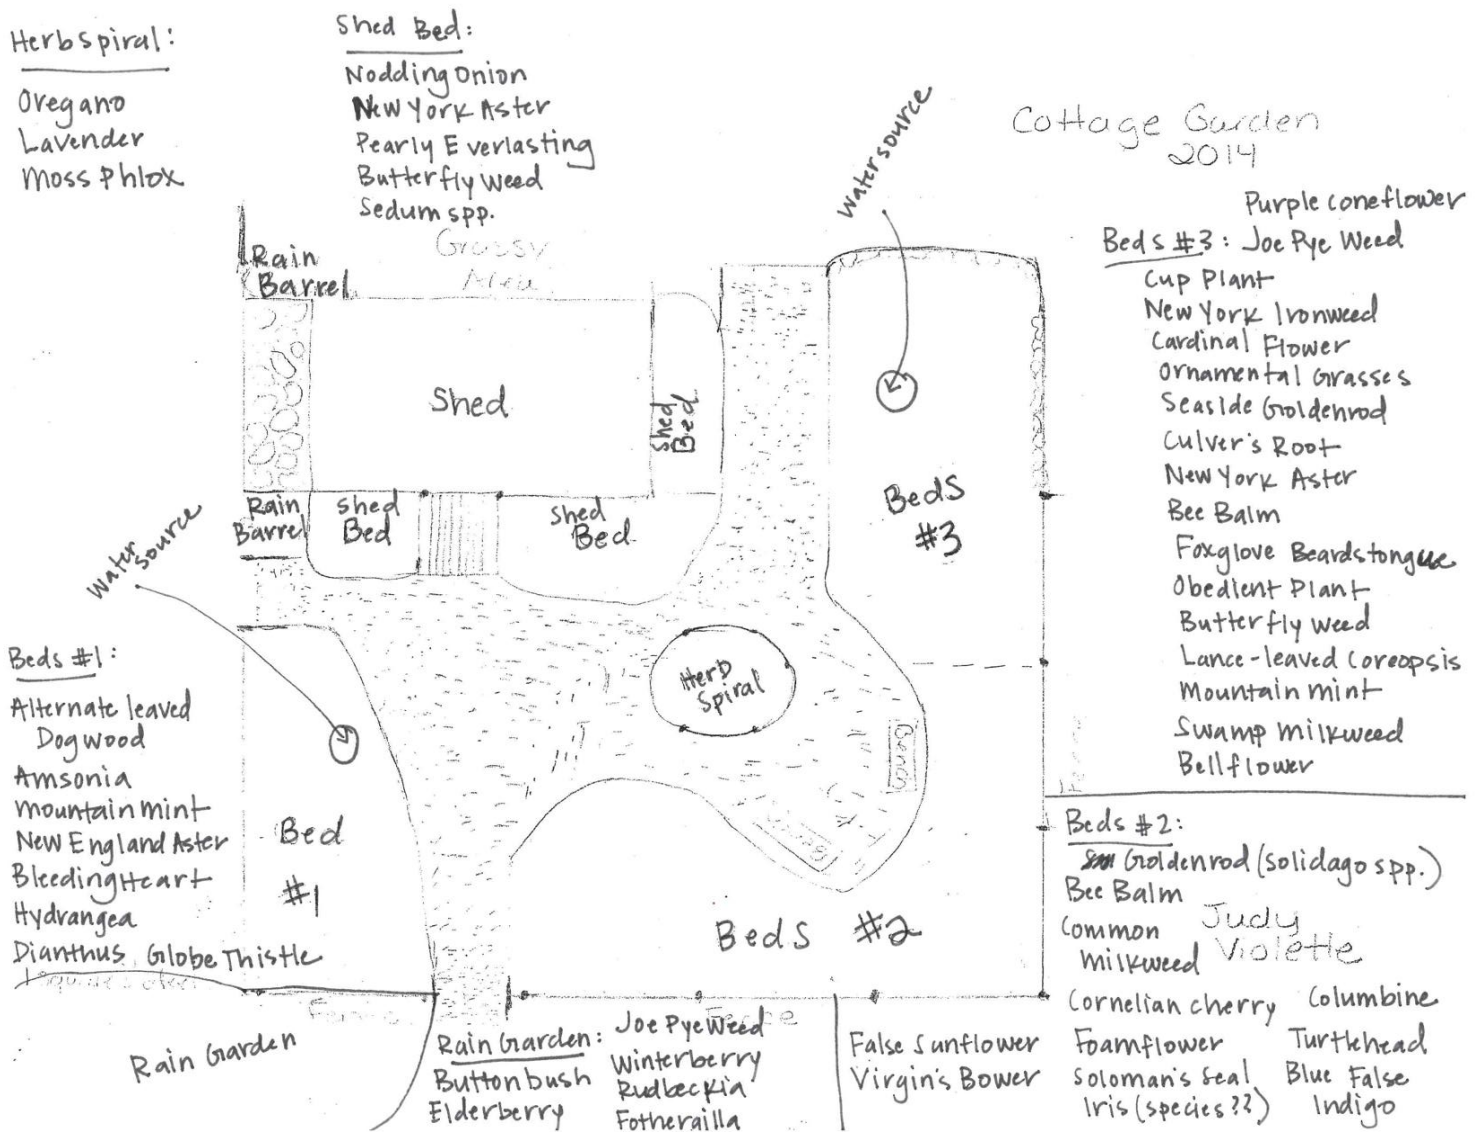 Herb Spiral:
Oregano
Lavender
Moss Phlox
Shed Bed:
Nodding Onion
New York Aster
Pearly Everlasting
Butterfly Weed
Sedum spp.
Grassy
Area
Water source
Cottage Garden
2014
Purple coneflower
Beds #3: Joe Pye Weed
Cup Plant
New York Ironweed
Cardinal Flower
Ornamental Grasses
Seaside Goldenrod
Culver's Root
New York Aster
Bee Balm
Foxglove Beardstongue
Obedient Plant
Butterfly weed
Lance-leaved Coreopsis
Mountain mint
Swamp milkweed
Bellflower
Rain
Barrel
Shed
Shed
Bed
Rain
Barrel
Shed
Bed
Shed
Bed
Beds
#3
Water
source
Herb
Spiral
Bench
Bench
Beds #1:
Alternate leaved
Dogwood
Amsonia
Mountain mint
New England Aster
Bleeding Heart
Hydrangea
Dianthus, Globe Thistle
Bed
#1
Beds #2
Fence
Fence
Rain Garden
Rain Garden:
Buttonbush
Elderberry
Joe Pye Weed
Winterberry
Rudbeckia
Fothergilla
False Sunflower
Virgin's Bower
Beds #2:
Goldenrod (solidago spp.)
Bee Balm
Common
Milkweed
Judy
Violette
Cornelian cherry
Foamflower
Soloman's Seal
Iris (species??)
Columbine
Turtlehead
Blue False
Indigo